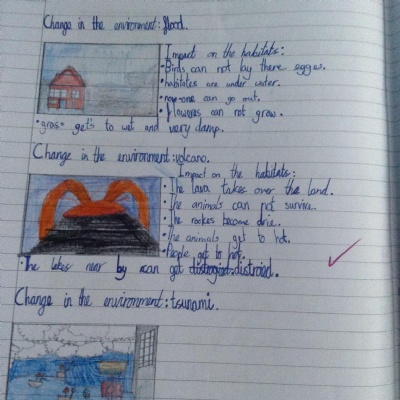 Change in the environment: flood.
Impact on the habitats:
• Birds can not by there egges.
• habitates are under water.
• now-one can go out.
• flowares can not grow.
• gras* get's to wet and very damp.
Change in the environment: volcano.
Impact on the habitats:
• The lava takes over the land.
• The animals can not survive.
• The rockes become drie.
• The animals get to hot.
• People get to hot.
• The lakes near by can get distroid.
Change in the environment: tsunami.